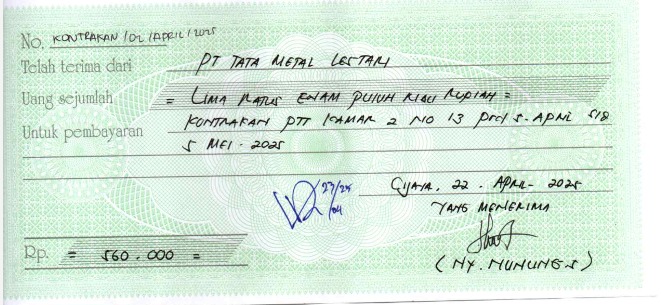 No. KONTRAKAN/02/APRIL/2025
Telah terima dari PT TATA METAL LESTARI
Uang sejumlah = LIMA RATUS ENAM PULUH RIBU RUPIAH =
Untuk pembayaran KONTRAKAN PTT KAMAR 2 NO 13 PRD 5 - APRIL S/D
5 MEI - 2025
23/25
/04
22 - APRIL - 2025
YANG MENERIMA
Rp. = 560.000 =
(NY. NUNUNG S)